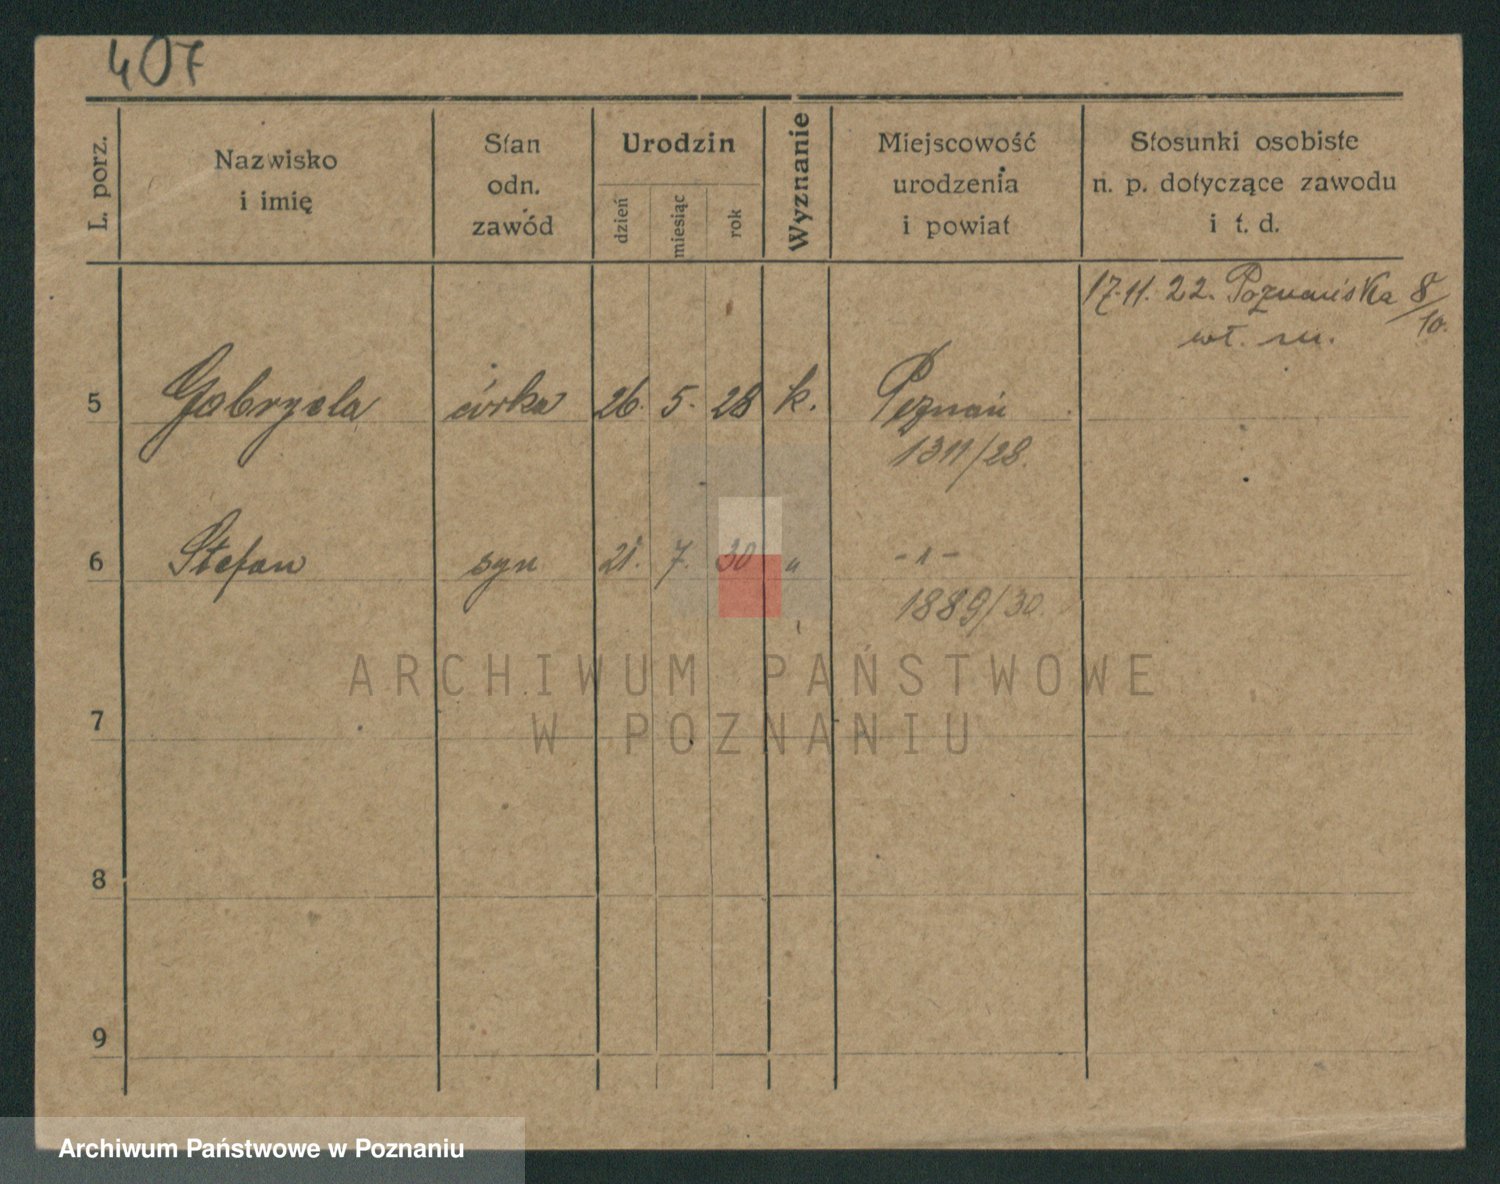 407
L. porz.
Nazwisko
i imię
Stan
odn.
zawód
Urodzin
dzień
miesiąc
rok
Wyznanie
Miejscowość
urodzenia
i powiat
Stosunki osobiste
n. p. dotyczące zawodu
i t. d.
17.11.22. Poznańska 8/10.
wł. m.
5 Gabryela córka 26. 5. 28 k. Poznań
1311/28.
6 Stefan syn 21. 7. 30 " - " -
1889/30.
ARCHIWUM PAŃSTWOWE
W POZNANIU
7
8
9
Archiwum Państwowe w Poznaniu